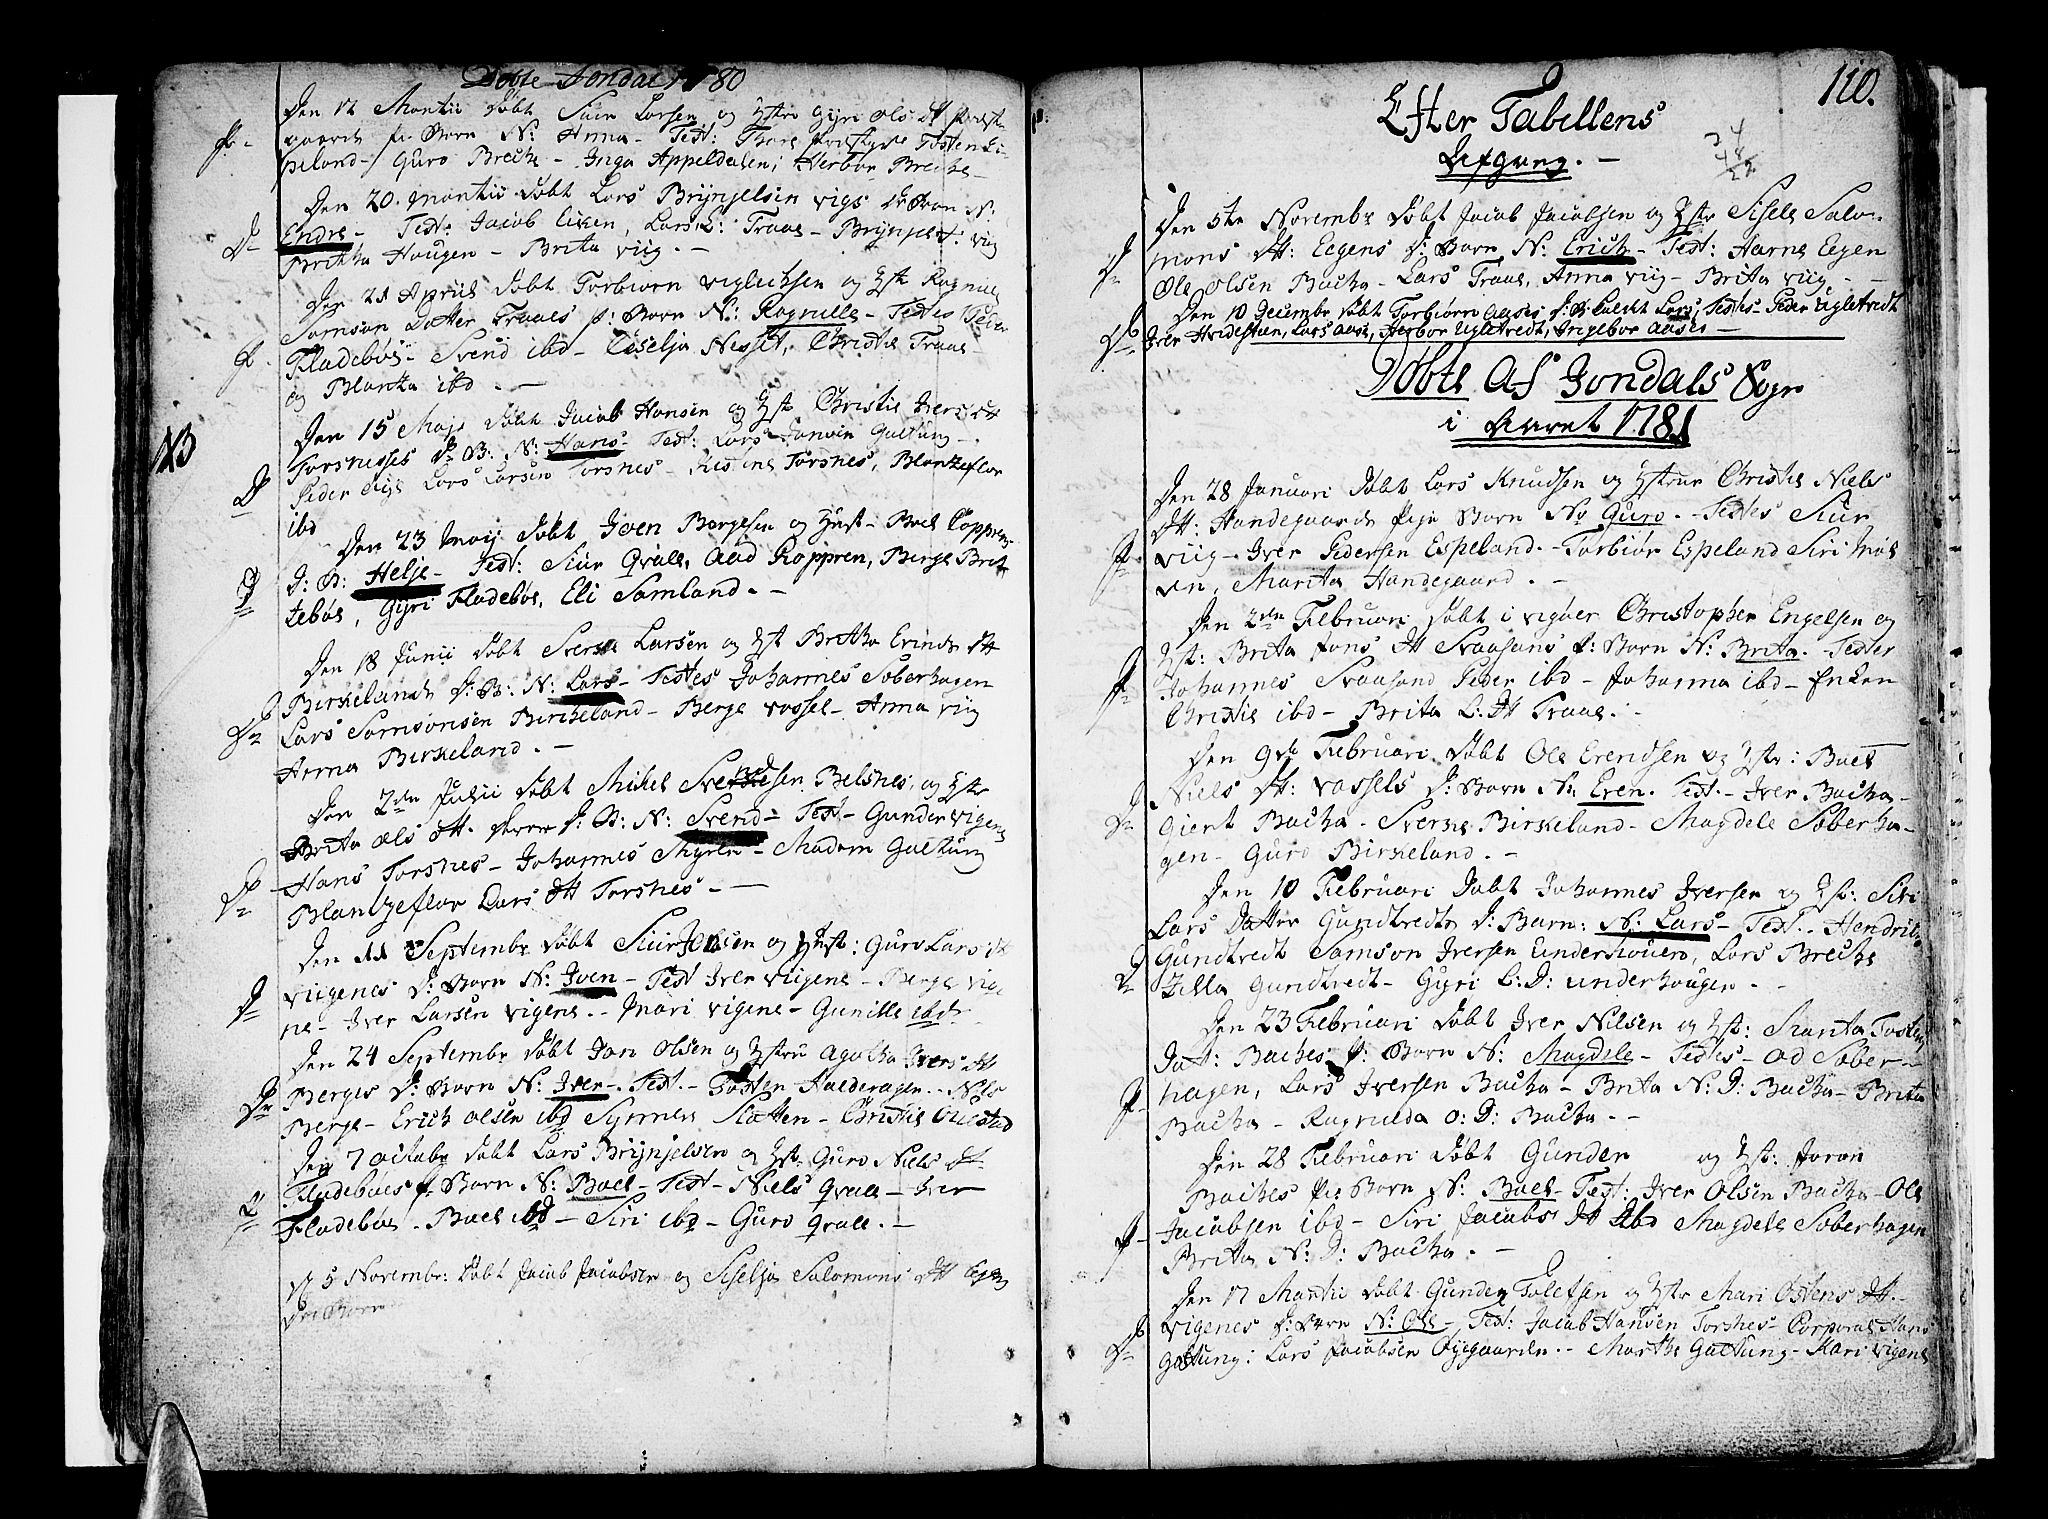 Døbte Jondal 1780
Den 12 Martii Døbt Siur Larsen og Hstr Gyri Ols Dt Præst-
gaards p: Barn N: Anna - Test: Tosten Es-
peland - Guro Breche - Inga Appeldalen, Herbor Breche -
Den 20. Martii Døbt Lars Brynjelsen Vigs D: Barn N:
Endre - Test: Jacob Eien, Lars L: Traae - Brynjel Viig
Britha Hougen - Brita Viig. -
Den 21 April Døbt Torbiorn Viglichsen og Hst Ragnille
Samson Datter Traaes p: Barn N: Ragnille - Testes Peder
Fladebøe - Svend ibd - Ceselja Nesset, Christie Traae -
og Blanka ibd. -
Den 15 Maji Døbt Jacob Hansen og Hst Christie Iversdt
13
Torsnesses D: B: N: Hans - Test: Lars Galtung -
Peder Lars Larsen Torsnes - Torsnes, Blantzeflor
ibd
Den 23 Maij Døbt Joen Bergesen og Hust - Boel Koppren
D: B: Helje - Test: Siur Qvale, Aad Koppren, Berge Brit
tebøe, Gyri Fladebøe, Eli Samland. -
Den 18 Junii Døbt Sverke Larsen og Hst Britha Erinds Dt
Birkelands D: B: N: Lars - Testes Johannes Soberhagen
Lars Samsonsen Birkeland - Berge Vassel - Anna Viig
Anna Birkeland. -
Den 2den Julii Døbt Mikel Svendsen Belsnes, og Hstr
Brita Ols Dtt. D: B: N: Svend - Test - Gunder Vigene
Hans Torsnes - Johannes Myren - Madam Galtung
Blantzeflor Lars Dt Torsnes. -
Den 11 Septembr Døbt Siur Olsen og Hust: Guro Lars dt
Viigenes D: Barn N: Joen - Test Iver Viigene - Berge Vige
ne - Iver Larsen Vigene. - Mari Vigene - Gunille ibd
Den 24 Septembr Døbt Jon Olsen og Hstru Agatha Ivers Dt
Berges D: Barn N: Iver - Test. - Tosten Halderagen. - Nils
Berge - Erich Olsen ibd Synneve Slotten - Christie
Den 7 Octobr Døbt Lars Brynjelsen og Hst. Guro Niels Dt
Fladebøes p: Barn N: Boel - Test - Niels Qvale - Iver
Fladebøe - Boel ibd - Siri ibd - Guro Qvale. -
D 5 Novembr: Døbt Jacob Jacobsen og Siselja Salomons Dt
Barn
110.
Efter Tabellens
Afgang. -
Den 5te Novembr Døbt Jacob Jacobsen og Hstr Sisele Salo-
mons Dt: Eegens D: Barn N: Erich - Test: Aarne Eegen
Ole Olsen Backa - Lars Traae, Anna Viig - Brita Viig. -
Den 10 Decembr Døbt Torbiørn Aases D: B: kaldet Lars, Testes - Peder Ugletvedt
Iver Hvidesteen, Lars Aase, Herbor Ugletvedt, Ingebor Aases -
Døbte Af Jondals Sogn
i Aaret 1781
Den 28 Januari Døbt Lars Knudsen og Hstrue Christie Niels
Dt: Handegaards Pige Barn N: Guro. - Testes Siur
Viig - Iver Pedersen Espeland. - Torbiør Espeland Siri Møl
len, Marita Handegaard. -
Den 2den Februari Døbt i Vigøer Christopher Engelsen og
Hst: Brita Jons Dt Svaasans p: Barn N: Brita. - Testes
Johannes Svaasand Peder ibd - Johanna ibd - Enken
Christie ibd - Brita L: Dt Traae. -
Den 9de Februari Døbt Ole Erendsen og Hstr: Boel
Niels Dt: Vassels D: Barn N: Eren. Test. - Iver Backa -
Gient Backa - Sverke Birkeland - Magdele Soberha-
gen - Guro Birkeland. -
Den 10 Februari Døbt Johannes Iversen og Hst: Siri
Lars Datter Gundtvedts D: Barn: N: Lars - Test. - Hendrik
Gundtvedt Samson Iversen Underhouen, Lars Breche
Zilla Gundtvedt - Gyri L: D: Underhougen. -
Den 23 Februari Døbt Iver Nilsen og Hst: Marita Tosten
Dat: Backes p: Barn N: Magdele - Testes - Od Sober-
hagen, Lars Iversen Backa - Brita N: D: Backa - Brita
Backa - Ragnilda O: D: Backa. -
Den 28 Februari Døbt Gunder og Hst: Joron
Backes p: Barn N: Boel - Test: Iver Olsen Backa - Ole
Jacobsen ibd - Siri Jacobs Dt ibd Magdele Soberhagen
Brita N: D: Backa. -
Den 17 Martii Døbt Gunder Tolefsen og Hstr Mari Ostens Dt. -
Vigenes D: Barn N: Ole - Test: Jacob Hansen Torsnes - Corporal Hans
Galtung: Lars Jacobsen Øyegaarden. - Marthe Galtung - Kari Vigene